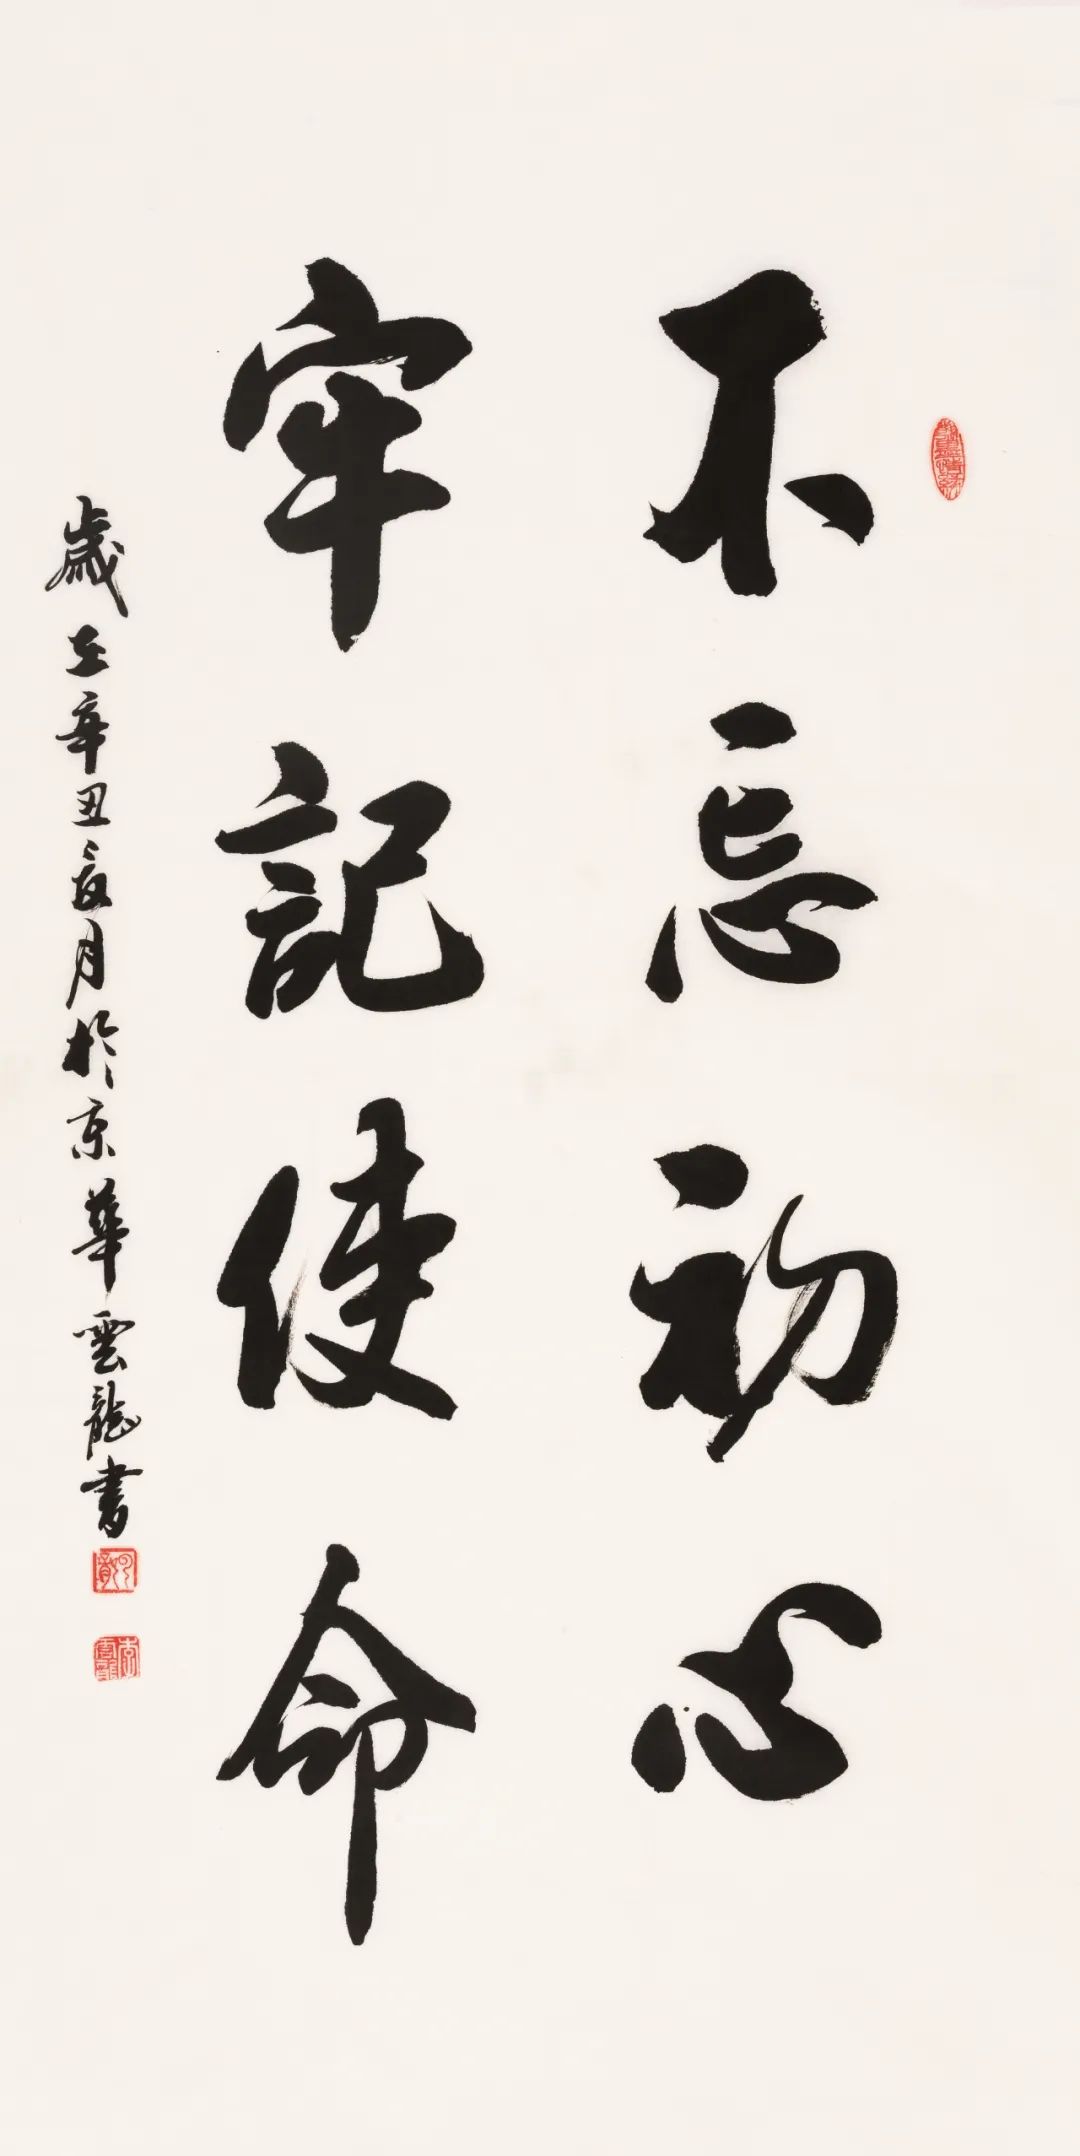 不忘初心
牢記使命
歲在辛丑夏月於京華雲龍书